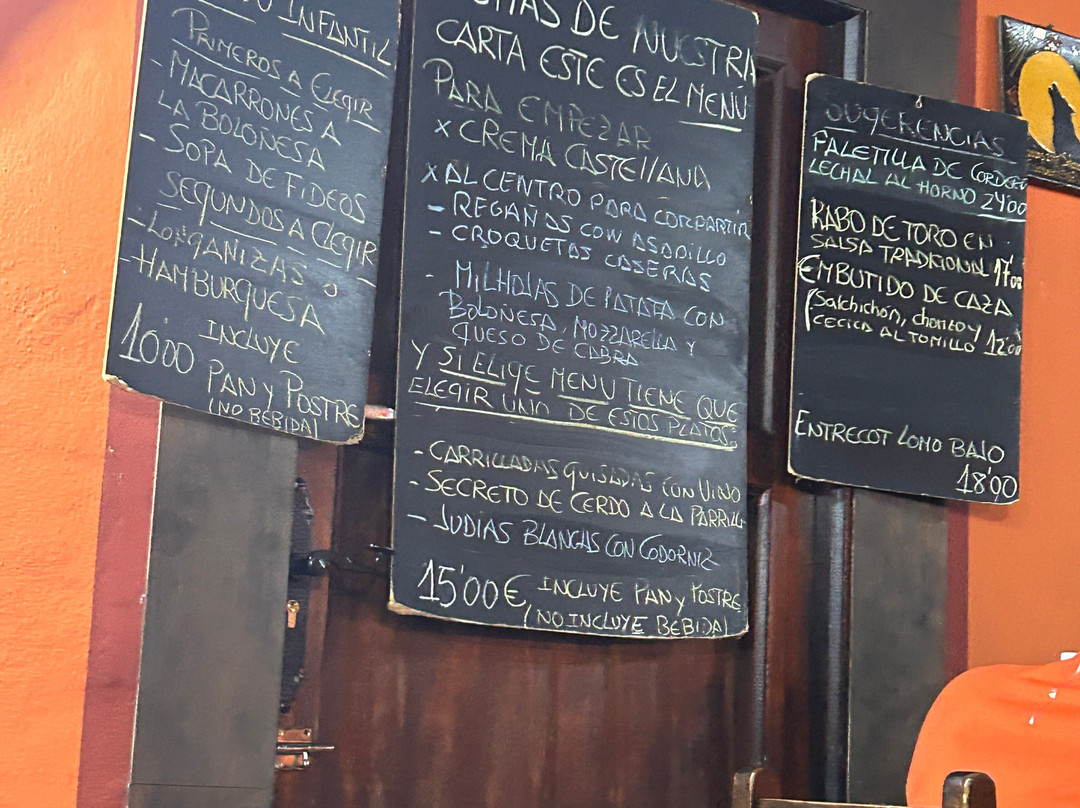 INFANTIL
PRIMEROS A ELEGIR
- MACARRONES A
LA BOLONESA
- SOPA DE FIDEOS
SEGUNDOS A ELEGIR
- LONGANIZAS O
- HAMBURGUESA
10'00 INCLUYE
PAN Y POSTRE
(NO BEBIDA)
DE NUESTRA
CARTA ESTE ES EL MENÚ
PARA EMPEZAR
x CREMA CASTELLANA
x AL CENTRO PARA COMPARTIR
- REGAÑAS CON ASADILLO
- CROQUETAS CASERAS
- MILHOJAS DE PATATA CON
BOLONESA, MOZZARELLA Y
QUESO DE CABRA
Y SI ELIGE MENU TIENE QUE
ELEGIR UNO DE ESTOS PLATOS:
- CARRILLADAS GUISADAS CON VINO
- SECRETO DE CERDO A LA PARRILLA
- JUDIAS BLANCAS CON CODORNIZ
15'00€ INCLUYE PAN Y POSTRE
(NO INCLUYE BEBIDA)
SUGERENCIAS
PALETILLA DE CORDERO
LECHAL AL HORNO 24'00
RABO DE TORO EN
SALSA TRADICIONAL 17'00
EMBUTIDO DE CAZA
(Salchichon, chorizo y
CECICA AL TOMILLO 12'00
ENTRECOT LOMO BAJO
18'90